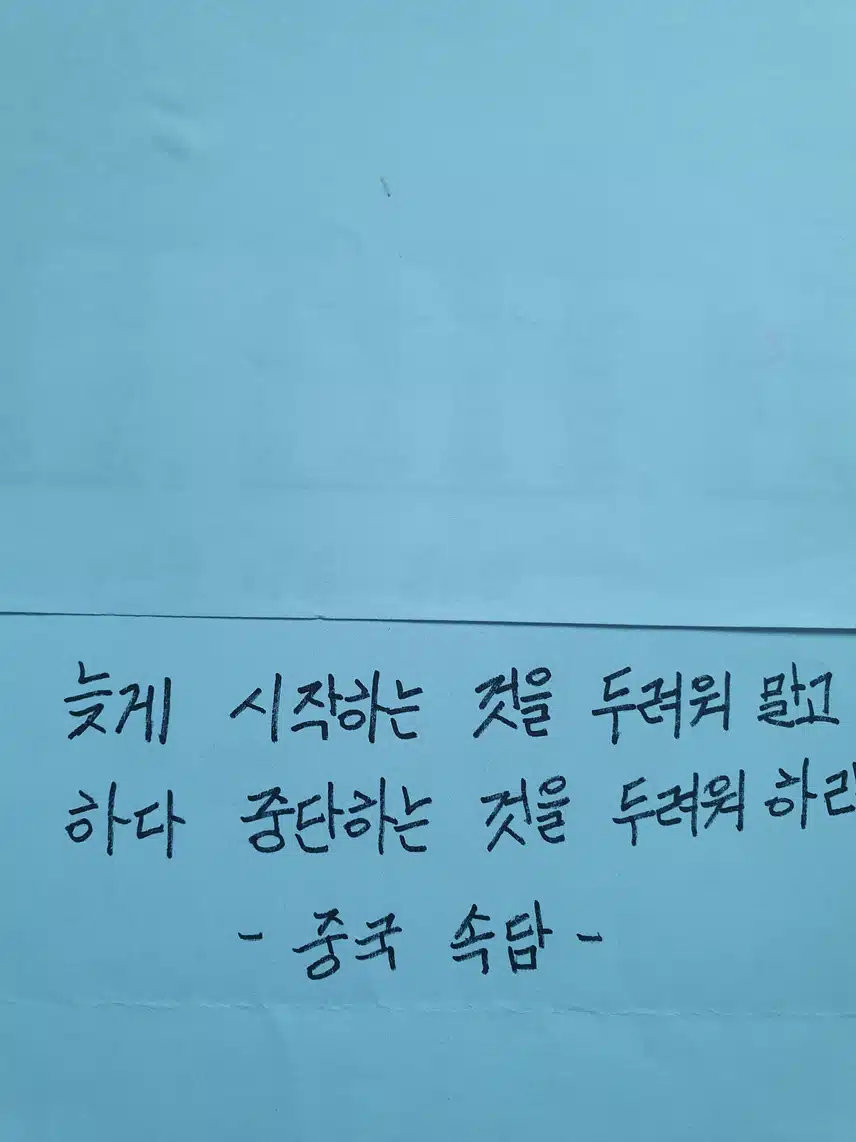 늦게 시작하는 것을 두려워 말고
하다 중단하는 것을 두려워 하라
- 중국 속담 -